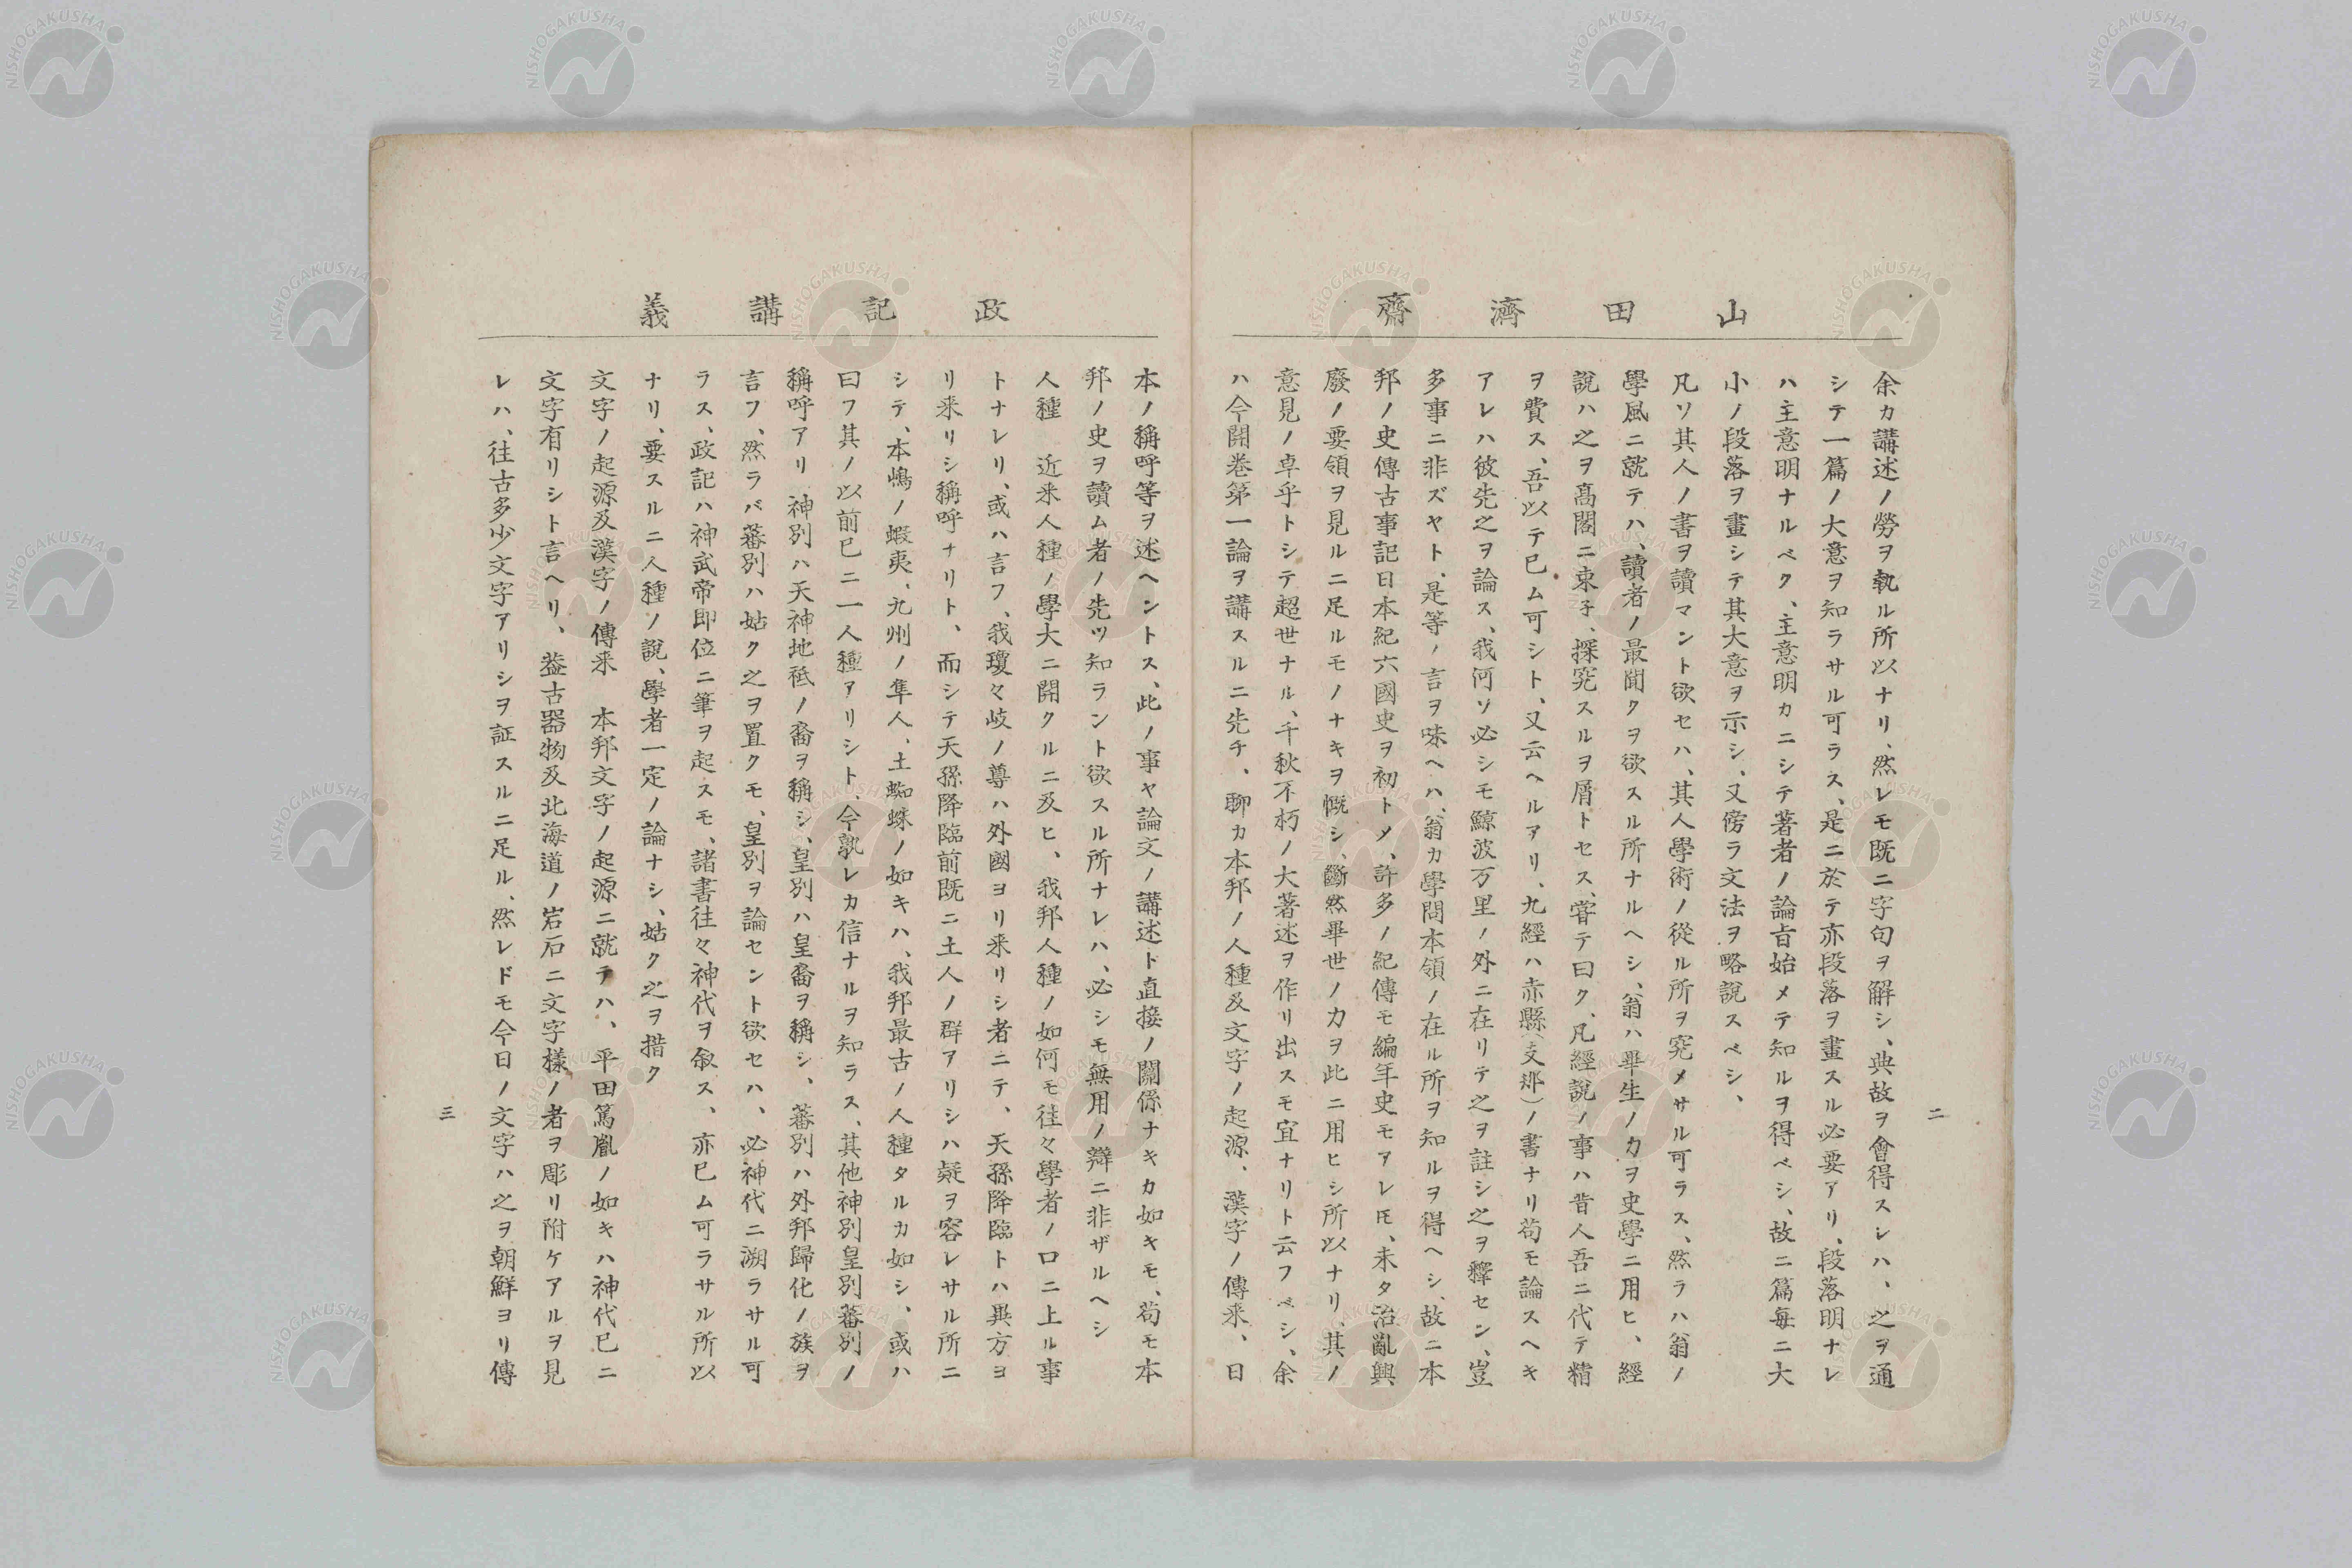 山田濟齋
二
余カ講述ノ勞ヲ執ル所以ナリ、然レモ既ニ字句ヲ解シ、典故ヲ會得スシハ、之ヲ通
シテ一篇ノ大意ヲ知ラサル可ラス、是ニ於テ亦段落ヲ畫スル必要アリ、段落明ナレ
ハ主意明ナルベク、主意明カニシテ著者ノ論旨始メテ知ルヲ得ベシ、故ニ篇每ニ大
小ノ段落ヲ畫シテ其大意ヲ示シ、又傍ラ文法ヲ略說スベシ、
凡ソ其人ノ書ヲ讀マント欲セハ、其人學術ノ從ル所ヲ究メサル可ラス、然ラハ翁ノ
學風ニ就テハ、讀者ノ最聞クヲ欲スル所ナルヘシ、翁ハ畢生ノ力ヲ史學ニ用ヒ、經
說ハ之ヲ高閣ニ束子、探究スルヲ屑トセス、嘗テ曰ク、凡經說ノ事ハ昔人吾ニ代テ精
ヲ費ス、吾以テ已ム可シト、又云ヘルアリ、九經ハ赤縣(支那)ノ書ナリ苟モ論スヘキ
アレハ彼先之ヲ論ス、我何ソ必シモ鯨波万里ノ外ニ在リテ之ヲ註シ之ヲ釋セン、豈
多事ニ非ズヤト、是等ノ言ヲ味ヘハ、翁カ學問本領ノ在ル所ヲ知ルヲ得ヘシ、故ニ本
邦ノ史傳古事記日本紀六國史ヲ初トメ、許多ノ紀傳モ編年史モアレ𪜈、未タ治亂興
廢ノ要領ヲ見ルニ足ルモノナキヲ慨シ、斷然畢世ノ力ヲ此ニ用ヒシ所以ナリ、其ノ
意見ノ卓乎トシテ超世ナル、千秋不朽ノ大著述ヲ作リ出スモ宜ナリト云フベシ、余
ハ今開卷第一論ヲ講スルニ先チ、聊カ本邦ノ人種及文字ノ起源、漢字ノ傳来、日
政記講義
本ノ稱呼等ヲ述ヘントス、此ノ事ヤ論文ノ講述ト直接ノ關係ナキカ如キモ、苟モ本
邦ノ史ヲ讀ム者ノ先ツ知ラント欲スル所ナレハ、必シモ無用ノ辯ニ非ザルヘシ
人種　近来人種ノ學大ニ開クルニ及ヒ、我邦人種ノ如何モ往々學者ノ口ニ上ル事
トナレリ、或ハ言フ、我瓊々岐ノ尊ハ外國ヨリ来リシ者ニテ、天孫降臨トハ異方ヨ
リ来リシ稱呼ナリト、而シテ天孫降臨前既ニ土人ノ群アリシハ疑ヲ容レサル所ニ
シテ、本嶋ノ蝦夷、九州ノ隼人、土蜘蛛ノ如キハ、我邦最古ノ人種タルカ如シ、或ハ
曰フ其ノ以前已ニ一人種アリシト、今孰レカ信ナルヲ知ラス、其他神別皇別蕃別ノ
稱呼アリ　神別ハ天神地祗ノ裔ヲ稱シ、皇別ハ皇裔ヲ稱シ、蕃別ハ外邦歸化ノ族ヲ
言フ、然ラバ蕃別ハ姑ク之ヲ置クモ、皇別ヲ論セント欲セハ、必神代ニ溯ラサル可
ラス、政記ハ神武帝即位ニ筆ヲ起スモ、諸書往々神代ヲ叙ス、亦已ム可ラサル所以
ナリ、要スルニ人種ソ說、學者一定ノ論ナシ、姑ク之ヲ措ク
文字ノ起源及漢字ノ傳来　本邦文字ノ起源ニ就テハ、平田篤胤ノ如キハ神代已ニ
文字有リシト言ヘリ、蓋古器物及北海道ノ岩石ニ文字樣ノ者ヲ彫リ附ケアルヲ見
レハ、往古多少文字アリシヲ証スルニ足ル、然レドモ今日ノ文字ハ之ヲ朝鮮ヨリ傳
三